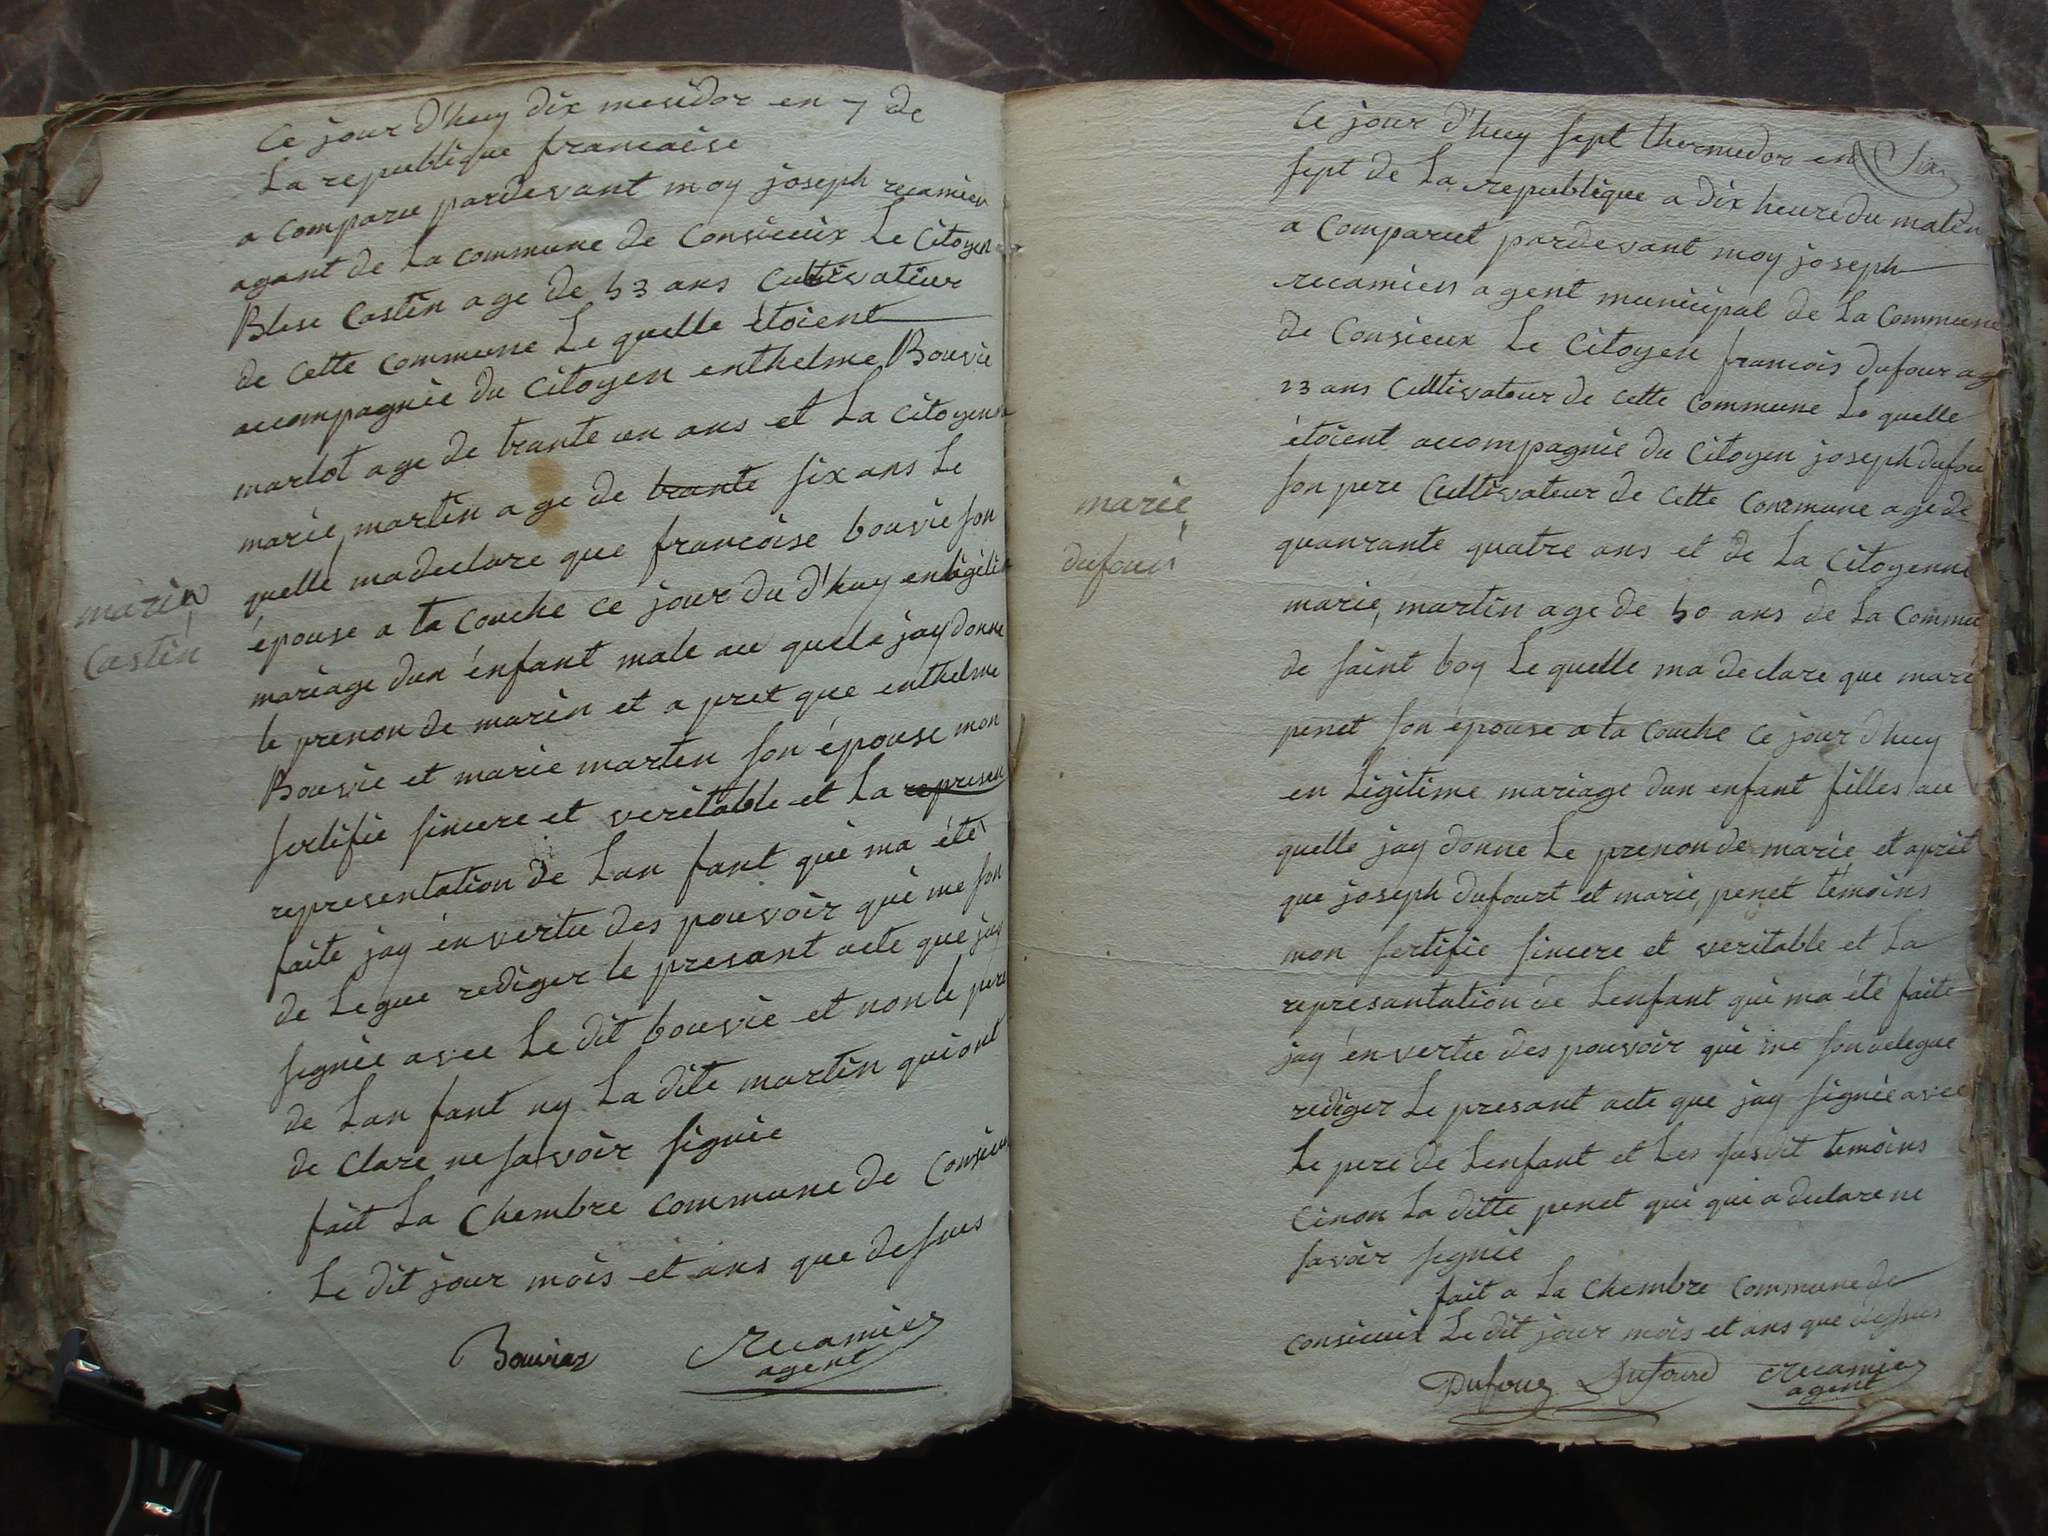 Ce jour d'huy dix mesidor en 7 de
La republique francaise
a comparu pardevant moy joseph recamier
agant de La commune de Consieux Le Citoyen
Blese Castin age de 53 ans Cultivateur
de cette commune Le quelle étoient
accompagnie du Citoyen enthelme Bouvie
marlot age de trante un ans et La Citoyenne
marie martin age de trante six ans Le
quelle ma declare que francoise bouvie son
épouse a ta Couche ce jour du d'huy en légitim
mariage dun énfant male au quele jay donne
le prenon de marin et a pret que enthelme
Bouvie et marie marten son épouse mon
sertifie sincere et veritable et La represen
representation de Lan fant qui ma été
faite jay én vertu des pouvoir qui me son
de Legue rediger le presant acte que jay
signée avec Le dit bouvie et non le pere
de Lan fant ny La dite martin qui ont
de Clare ne savoir signie
fait La Chembre commune de Consieux
Le dit jour mois et ans que dessus
Bouvier recamier
agent
marin
Castin
Ce jour d'huy sept thermedor en Six
sept de La republique a dix heure du matin
a Comparut pardevant moy joseph
recamier agent municipal de La Commune
de Consieux Le Citoyen francois dufour age
23 ans Cultivateur de cette Commune Le quelle
étoient accompagnie du Citoyen joseph dufour
son pere Cultivateur de cette Commune age de
quanrante quatre ans et de La Citoyenne
marie martin age de 50 ans de La Commu
de saint boy Le quelle ma declare que marie
penet son épouse a ta couche ce jour d'huy
en Légitime mariage dun enfant filles au
quelle jay donne Le prenon de marie et apret
que joseph dufourt et marie penet témoins
mon sertifie sincere et veritable et La
represantation de Lenfant qui ma été faite
jay én vertu des pouvoir qui me son delegue
rediger Le presant acte que jay signée avec
Le pere de Lenfant et Les susdit temoins
Cinon La ditte penet qui qui a declare ne
savoir signie
fait a La Chembre Commune de
Consieux Le dit jour mois et ans que dessus
Dufour Dufourd recamier
agent
marie
dufour